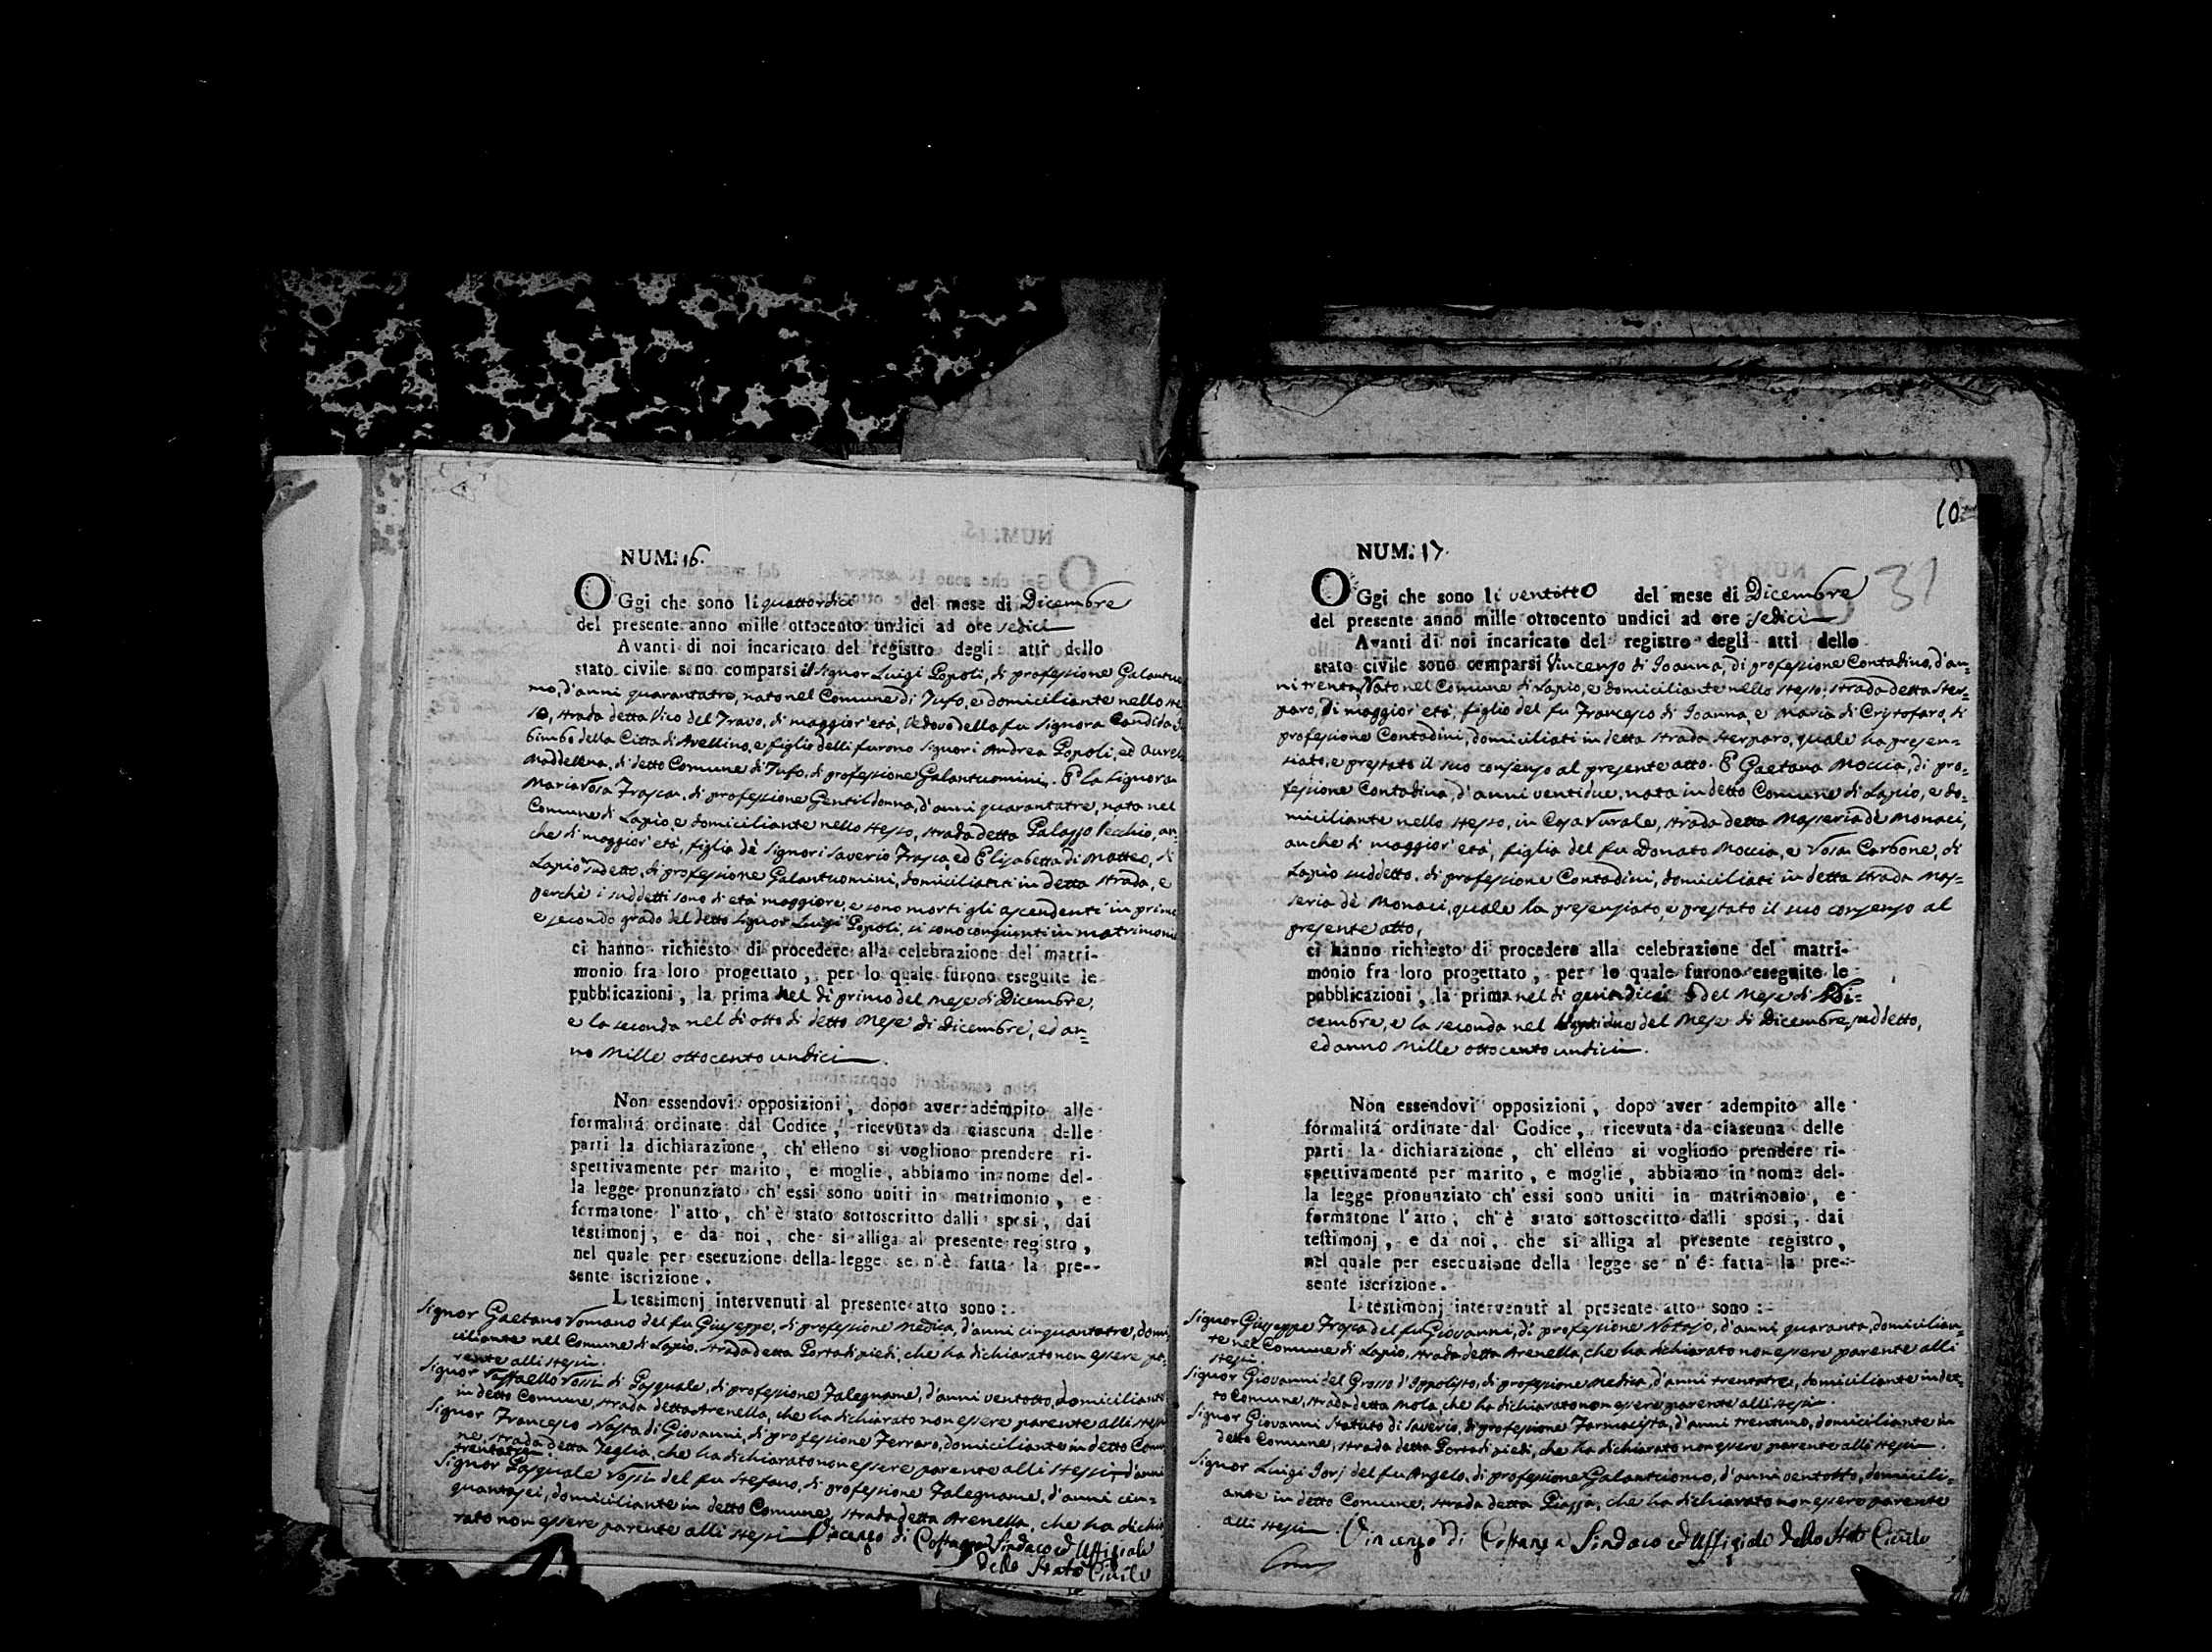 NUM: 16.
OGgi che sono li quattordici del mese di Dicembre
del presente anno mille ottocento undici ad ore sedici
Avanti di noi incaricato del registro degli atti dello
stato civile sono comparsi il Signor Luigi Popoli, di professione Galantuo
mo, d'anni quarantatre, nato nel Comune di Tufo, e domiciliante nello ste
so, strada detta Vico del Travo, di maggior età, Vedovo della fu Signora Candida
bimbo della Città di Avellino, e figlio delli furono Signori Andrea Popoli, ed Aurel
Maddellena, di detto Comune di Tufo, di professione Galantuomini. E la Signora
Maria Rosa Trasca, di professione Gentildonna, d'anni quarantatre, nata nel
Comune di Lapio, e domiciliante nello stesso, strada detta Palazzo Vecchio, an
che di maggior età, figlia de Signori Saverio Trasca, ed Elisabetta di Matteo, di
Lapio sudetto, di professione Galantuomini, domiciliati in detta strada, e
perchè i suddetti sono di età maggiore, e sono morti gli ascendenti in primo
e secondo grado del detto Signor Luigi Popoli, si sono congiunti in matrimoni
ci hanno richiesto di procedere alla celebrazione del matri-
monio fra loro progettato, per lo quale furono eseguite le
pubblicazioni, la prima nel dì primo del Mese di Dicembre,
e la seconda nel dì otto di detto Mese di Dicembre, ed an=
no Mille ottocento undici.
Non essendovi opposizioni, dopo aver adempito alle
formalitá ordinate dal Codice, ricevuta da ciascuna delle
parti la dichiarazione, ch'elleno si vogliono prendere ri-
spettivamente per marito, e moglie, abbiamo in nome del-
la legge pronunziato ch'essi sono uniti in matrimonio, e
formatone l'atto, ch'è stato sottoscritto dalli sposi, dai
testimonj, e da noi, che si alliga al presente registro,
nel quale per esecuzione della legge se n'è fatta la pre-
sente iscrizione.
I testimonj intervenuti al presente atto sono:
Signor Gaetano Romano del fu Giuseppe, di professione Medica, d'anni cinquantatre, domi
ciliante nel Comune di Lapio, strada detta Porta di piedi, che ha dichiarato non essere pa=
rente alli stessi.
Signor Raffaello Rossi di Pasquale, di professione Falegname, d'anni ventotto, domiciliante
in detto Comune, strada detta Arenella, che ha dichiarato non essere parente alli stessi
Signor Francesco Nasta di Giovanni, di professione Ferraro, domiciliante in detto Comu
ne, strada detta Teglia, che ha dichiarato non essere parente alli stessi d'anni
trentatre
Signor Pasquale Rossi del fu Stefano, di professione Falegname, d'anni cin=
quantasei, domiciliante in detto Comune, strada detta Arenella, che ha dichia
rato non essere parente alli stessi Vincenzo di Costanza Sindaco ed Uffiziale
dello Stato Civile
10
31
NUM: 17.
OGgi che sono li ventotto del mese di Dicembre
del presente anno mille ottocento undici ad ore Sedici
Avanti di noi incaricato del registro degli atti dello
stato civile sono comparsi Vincenzo di Joanna, di professione Contadino, d'an=
ni trenta, Nato nel Comune di Lapio, e domiciliante nello stesso, strada detta Ster=
paro, di maggior età, figlio del fu Francesco di Joanna, e Maria di Cristofaro, di
professione Contadini, domiciliati in detta strada Sterparo, quale ha presen=
ziato, e prestato il suo consenso al presente atto. E Gaetana Moccia, di pro=
fessione Contadina, d'anni ventidue, nata in detto Comune di Lapio, e do=
miciliante nello stesso, in Casa Rurale, strada detta Masseria de Monaci,
anche di maggior età, figlia del fu Donato Moccia, e Rosa Carbone, di
Lapio suddetto, di professione Contadini, domiciliati in detta strada Mas=
seria de Monaci, quale ha presenziato, e prestato il suo consenso al
presente atto,
ci hanno richiesto di procedere alla celebrazione del matri-
monio fra loro progettato, per lo quale furono eseguite le
pubblicazioni, la prima nel dì quindici del Mese di Di=
cembre, e la seconda nel Ventidue del Mese di Dicembre suddetto,
ed anno Mille ottocento undici.
Non essendovi opposizioni, dopo aver adempito alle
formalitá ordinate dal Codice, ricevuta da ciascuna delle
parti la dichiarazione, ch'elleno si vogliono prendere ri-
spettivamente per marito, e moglie, abbiamo in nome del-
la legge pronunziato ch'essi sono uniti in matrimonio, e
formatone l'atto, ch'è stato sottoscritto dalli sposi, dai
testimonj, e da noi, che si alliga al presente registro,
nel quale per esecuzione della legge se n'é fatta la pre-
sente iscrizione.
I testimonj intervenuti al presente atto sono:
Signor Giuseppe Trasca del fu Giovanni, di professione Notajo, d'anni quaranta, domicilian=
te nel Comune di Lapio, strada detta Arenella, che ha dichiarato non essere parente alli
stessi.
Signor Giovanni del Grosso d'Ippolisto, di professione Medica, d'anni trentatre, domiciliante in det=
to Comune, strada detta Mola, che ha dichiarato non essere parente alli stessi.
Signor Giovanni Statuto di Saverio, di professione Farmacista, d'anni trentuno, domiciliante in
detto Comune, strada detta Porta di piedi, che ha dichiarato non essere parente alli stessi.
Signor Luigi Jorj del fu Angelo, di professione Galantuomo, d'anni ventotto, domicili=
ante in detto Comune, strada detta Piazza, che ha dichiarato non essere parente
alli stessi. Vincenzo Di Costanza Sindaco ed Uffiziale dello Stato Civile